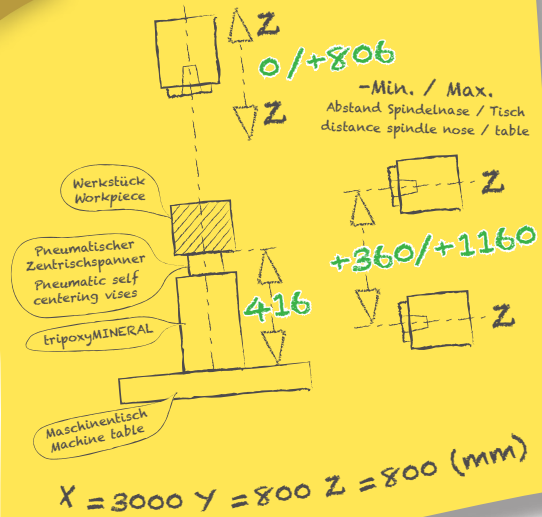 Z
0/+806
Z
-Min. / Max.
Abstand Spindelnase / Tisch
distance spindle nose / table
Werkstück
Workpiece
Z
Pneumatischer
Zentrischspanner
Pneumatic self
centering vises
+360/+1160
416
Z
tripoxyMINERAL
Maschinentisch
Machine table
X = 3000 Y = 800 Z = 800 (mm)